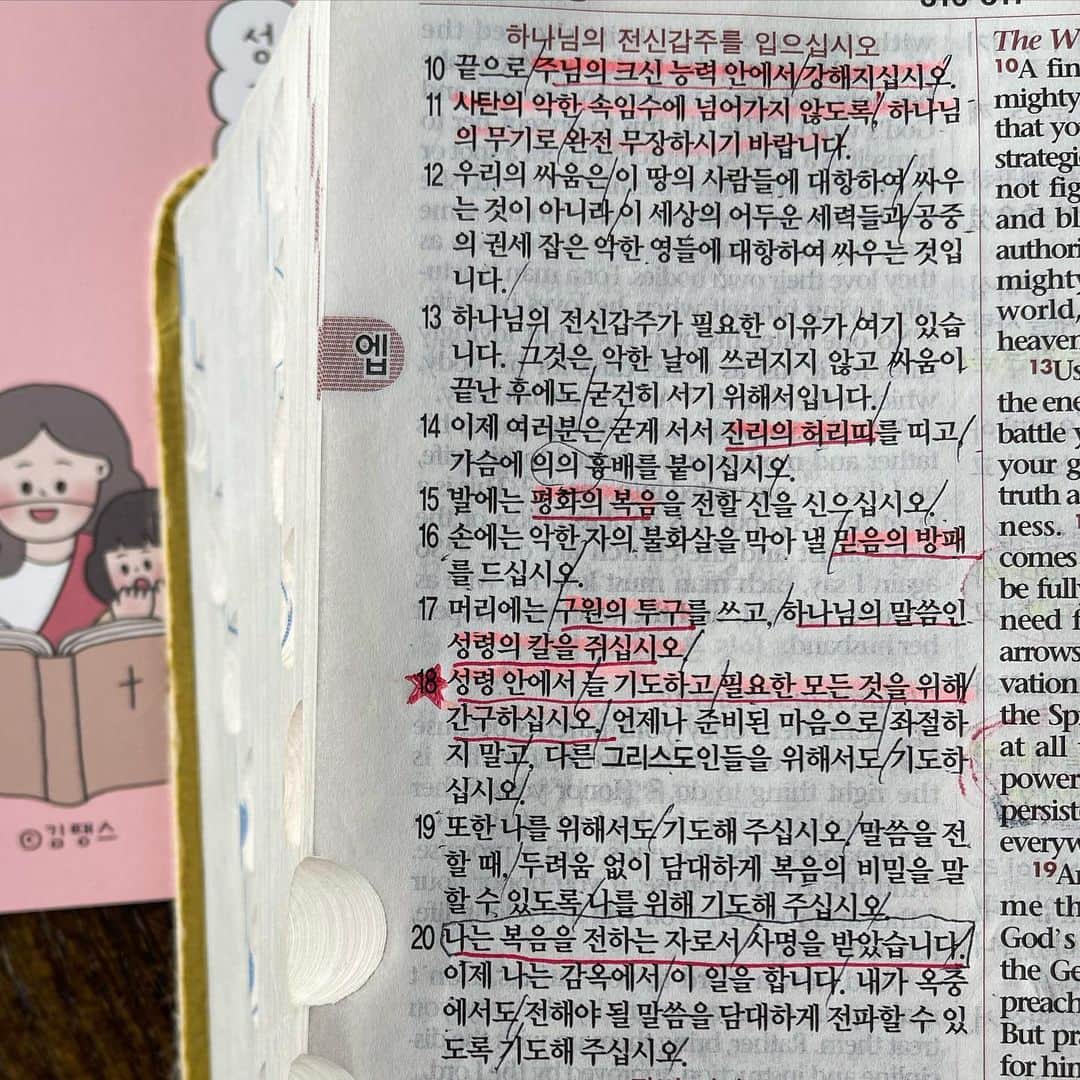 성
ⓒ김땡스
엡
하나님의 전신갑주를 입으십시오
10 끝으로 주님의 크신 능력 안에서 강해지십시오.
11 사탄의 악한 속임수에 넘어가지 않도록, 하나님
의 무기로 완전 무장하시기 바랍니다.
12 우리의 싸움은 이 땅의 사람들에 대항하여 싸우
는 것이 아니라 이 세상의 어두운 세력들과 공중
의 권세 잡은 악한 영들에 대항하여 싸우는 것입
니다.
13 하나님의 전신갑주가 필요한 이유가 여기 있습
니다. 그것은 악한 날에 쓰러지지 않고 싸움이
끝난 후에도 굳건히 서기 위해서입니다.
14 이제 여러분은 굳게 서서 진리의 허리띠를 띠고,
가슴에 의의 흉배를 붙이십시오.
15 발에는 평화의 복음을 전할 신을 신으십시오.
16 손에는 악한 자의 불화살을 막아 낼 믿음의 방패
를 드십시오.
17 머리에는 구원의 투구를 쓰고, 하나님의 말씀인
성령의 칼을 쥐십시오.
18 성령 안에서 늘 기도하고 필요한 모든 것을 위해
간구하십시오. 언제나 준비된 마음으로 좌절하
지 말고, 다른 그리스도인들을 위해서도 기도하
십시오.
19 또한 나를 위해서도 기도해 주십시오. 말씀을 전
할 때, 두려움 없이 담대하게 복음의 비밀을 말
할 수 있도록 나를 위해 기도해 주십시오.
20 나는 복음을 전하는 자로서 사명을 받았습니다.
이제 나는 감옥에서 이 일을 합니다. 내가 옥중
에서도 전해야 될 말씀을 담대하게 전파할 수 있
도록 기도해 주십시오.
The W
10 A fin
mighty
that yo
strategi
not fig
and bl
authori
mighty
world,
heaven
13 Us
the ene
battle y
your g
truth a
ness.
comes
be full
need f
arrows
vation
the Sp
at all
power
persist
everyw
19 An
me th
God's
the Ge
preach
But pra
for him